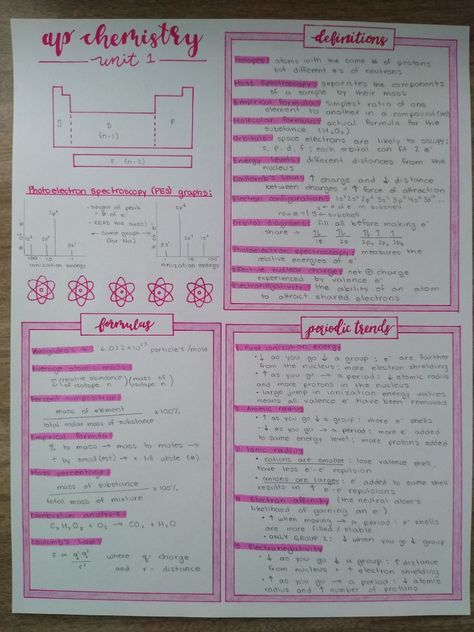 ap chemistry
unit 1
S
D
(n-1)
P
F (n-2)
Photoelectron spectroscopy (PES) graphs:
height of peak
= # of e⁻
same graph
(for Na)
ionization energy
ionization energy
definitions
Isotopes: atoms with the same # of protons
but different #s of neutrons
Mass spectroscopy: separates the components
of a sample by their mass
Empirical formula: simplest ratio of one
element to another in a compound
Molecular formula: actual formula for the
substance (H₂O₂)
Orbitals: space electrons are likely to occupy;
s, p, d, f; each orbital can fit 2 e⁻
Energy levels: different distances from the
nucleus
Coulomb's Law: ↑ charge and ↓ distance
between charges = ↑ force of attraction
Electron configuration: 1s² 2s² 2p⁶ 3s²
# of e⁻ in subshell
Orbital diagrams: fill all before making e⁻
share
1s 2s 2p₁ 2p₂ 2p₃
Photoelectron spectroscopy: measures the
relative energies of e⁻
Effective nuclear charge: net ⊕ charge
experienced by valence e⁻
Electronegativity: the ability of an atom
to attract shared electrons
formulas
Avogadro's #: 6.022 × 10²³ particles/mole
Average atomic mass:
Σ (relative abundance of isotope n) (mass of isotope n)
Percent composition:
mass of element
total molar mass of substance
× 100%
Empirical formula:
% to mass → mass to moles →
÷ by small(est) → × till whole (#)
Mass percentage:
mass of substance
total mass of mixture
× 100%
Combustion analysis:
CₓHᵧO_z + O₂ → CO₂ + H₂O
Coulomb's Law:
where q = charge
and r = distance
periodic trends
1. First ionization energy
• ↓ as you go ↓ a group: e⁻ are farther
from the nucleus; more electron shielding
• ↑ as you go → a period: ↓ atomic radius
and more protons in the nucleus
• large jump in ionization energy values
means all valence e⁻ have been removed
2. Atomic radius
• ↑ as you go ↓ a group: more e⁻ shells
• ↓ as you go → a period: e⁻ added
to same energy level; more protons added
3. Ionic radius
• cations are smaller: lose valence shell
have less e⁻-e⁻ repulsion
• anions are larger: e⁻ added to same shell
results in ↑ e⁻-e⁻ repulsions
4. Electron affinity (the neutral atom's
likelihood of gaining an e⁻)
• ↑ when moving → a period: e⁻ shells
are more filled / stable
↓ when you go ↓ group
5. Electronegativity
• ↓ as you go ↓ a group: ↑ distance
from nucleus = ↑ electron shielding
• ↑ as you go → a period: ↓ atomic
radius and ↑ number of protons